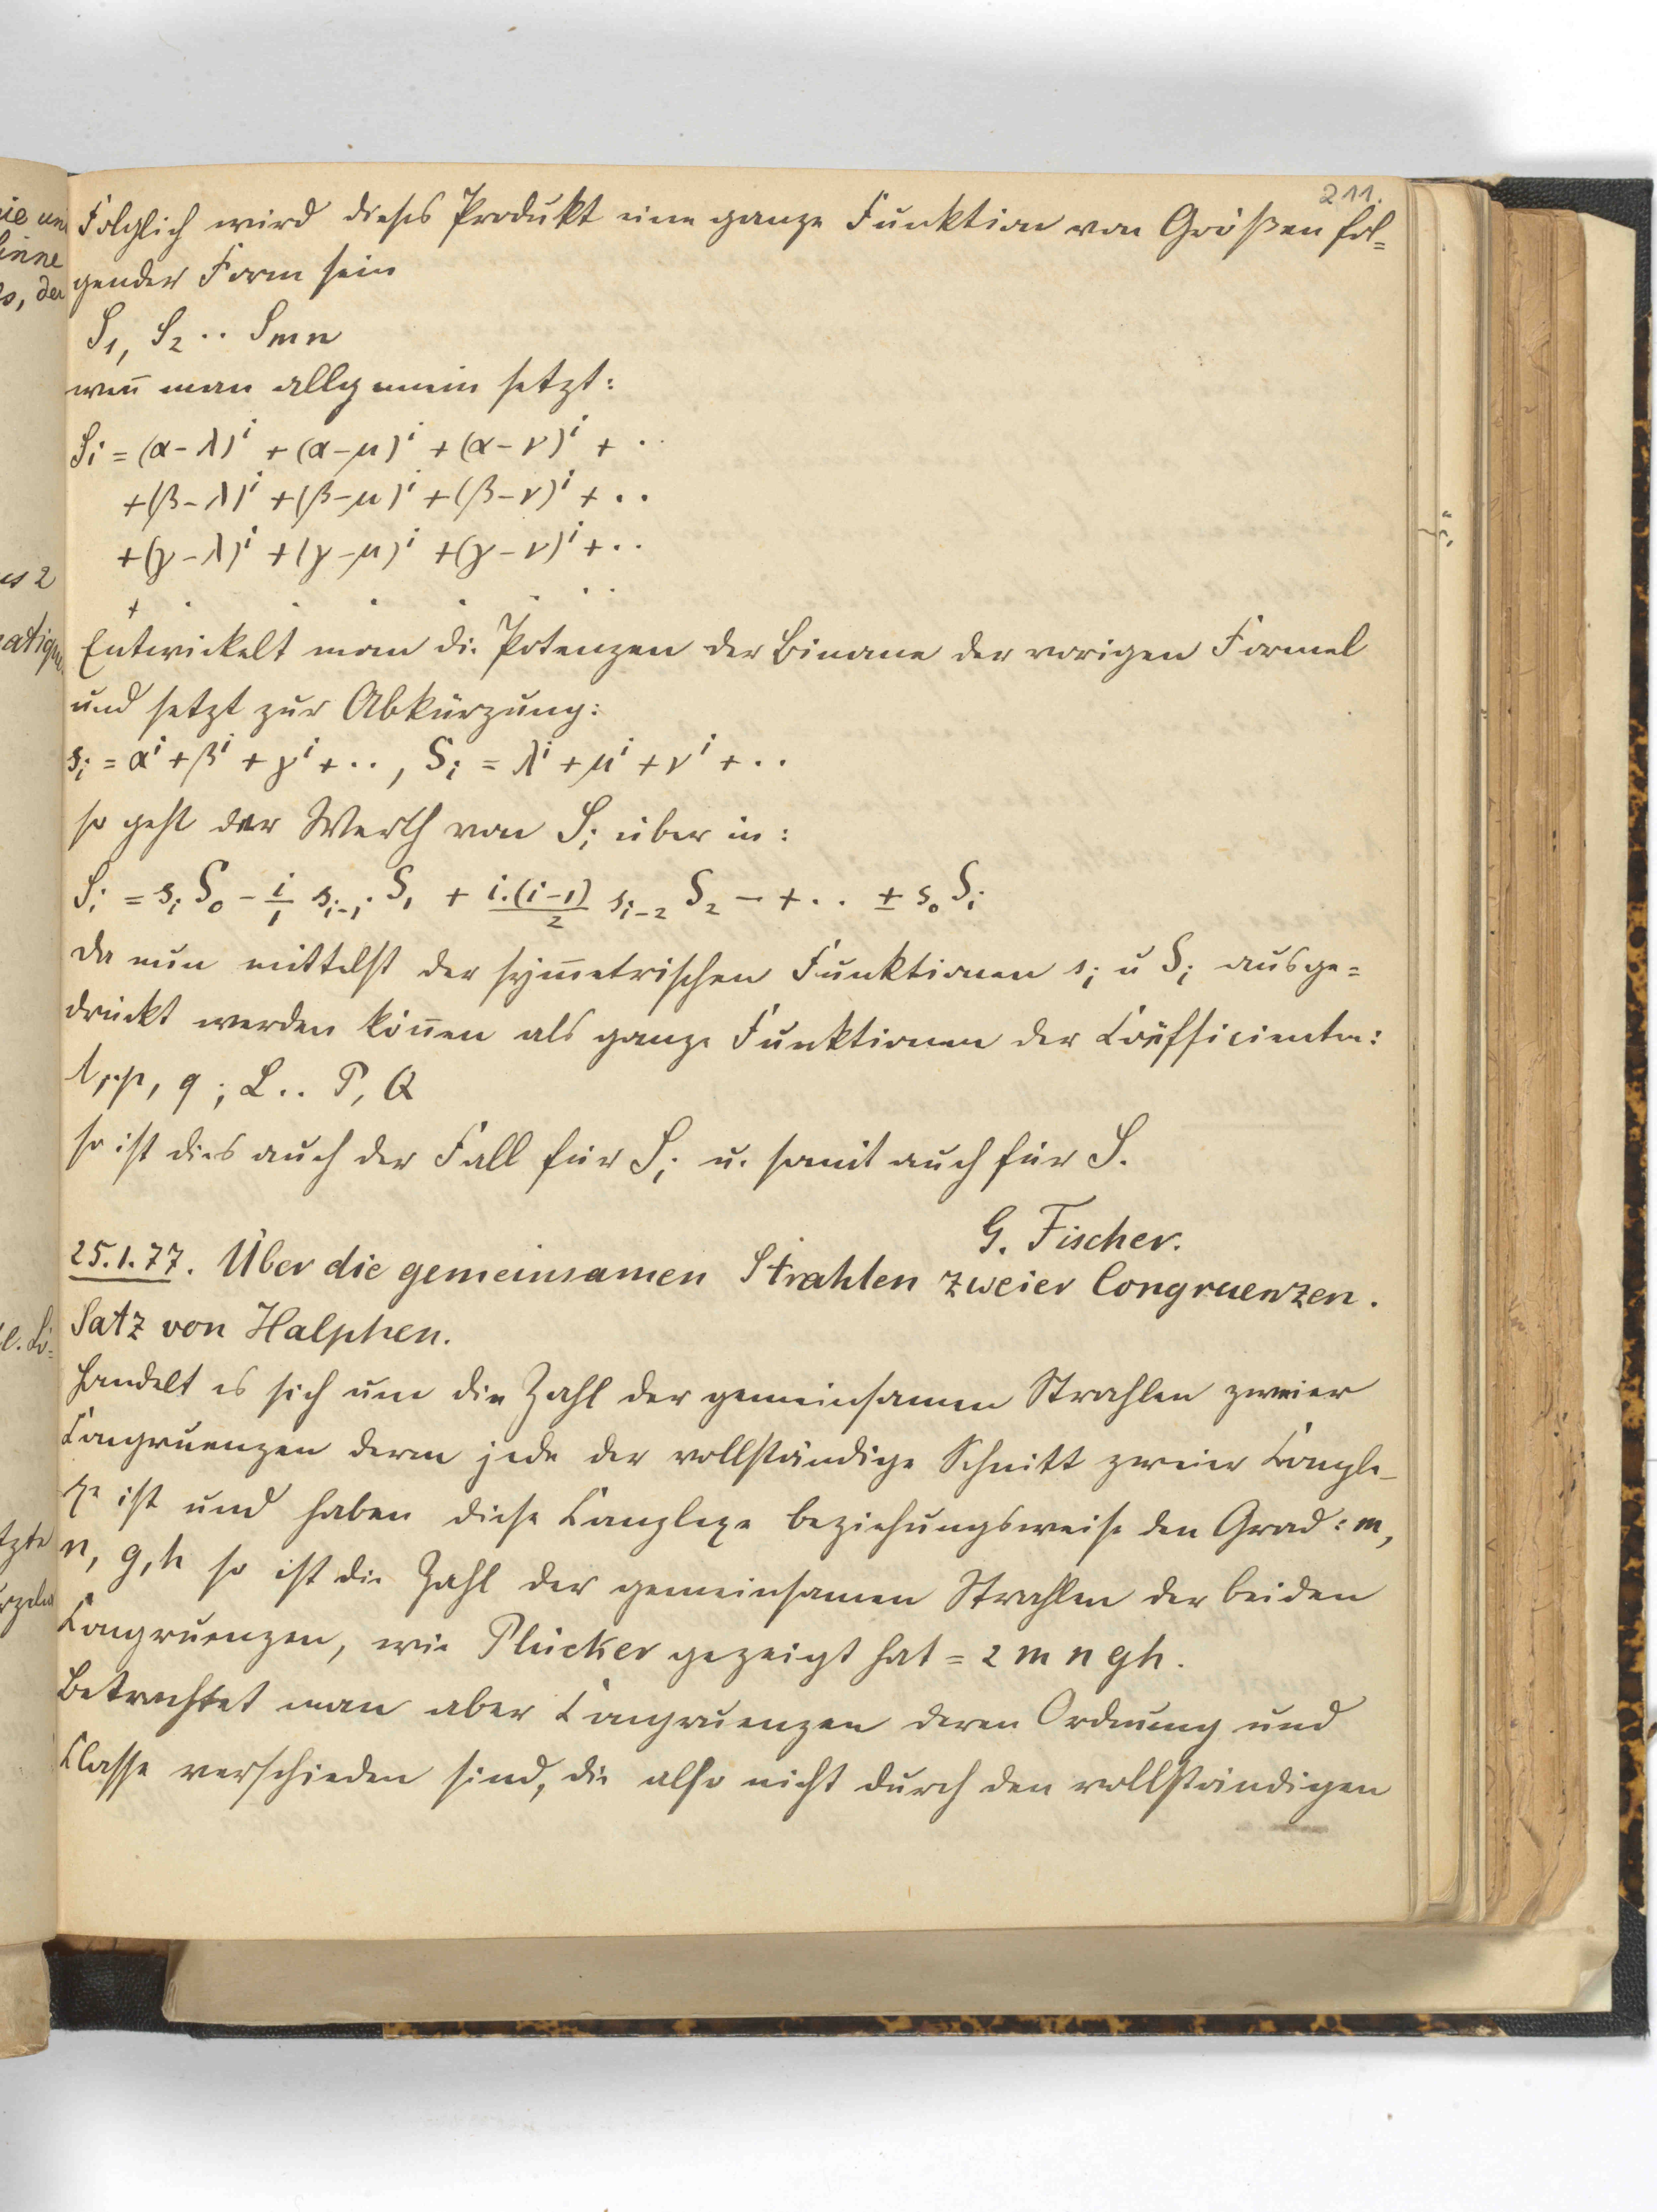 211.
Folglich wird dieses Produkt eine ganze Funktion von Größen fol=
gender Form sein
S₁, S₂ .. Smn
weñ man allgemein setzt:
Si = (α-λ)ⁱ + (α-μ)ⁱ + (α-ν)ⁱ + ..
+(β-λ)ⁱ + (β-μ)ⁱ + (β-ν)ⁱ + ..
+(γ-λ)ⁱ + (γ-μ)ⁱ + (γ-ν)ⁱ + ..
+ . . . . . . .
Entwickelt man die Potenzen der Binome der vorigen Formel
und setzt zur Abkürzung:
sᵢ = αⁱ + βⁱ + γⁱ + .. , Sᵢ = λⁱ + μⁱ + νⁱ + ..
so geht der Werth von Sᵢ über in:
Sᵢ = sᵢ S₀ - i/1 sᵢ₋₁ . S₁ + i.(i-1)/2 sᵢ₋₂ S₂ - + .. ± s₀ Sᵢ
da nun mittelst der sym̄etrischen Funktionen sᵢ u Sᵢ ausge=
drückt werden köñen als ganze Funktionen der Coëfficienten:
l,..p, q ; L .. P, Q
so ist dies auch der Fall für Sᵢ u. somit auch für S.
G. Fischer.
25.1.77. Über die gemeinsamen Strahlen zweier Congruenzen.
Satz von Halphen.
Handelt es sich um die Zahl der gemeinsamen Strahlen zweier
Congruenzen deren jede der vollständige Schnitt zweier Comple-
xe ist und haben diese Complexe beziehungsweise den Grad: m,
n, g, h so ist die Zahl der gemeinsamen Strahlen der beiden
Congruenzen, wie Plücker gezeigt hat = 2 m n g h.
Betrachtet man aber Congruenzen deren Ordnung und
Classe verschieden sind, die also nicht durch den vollständigen